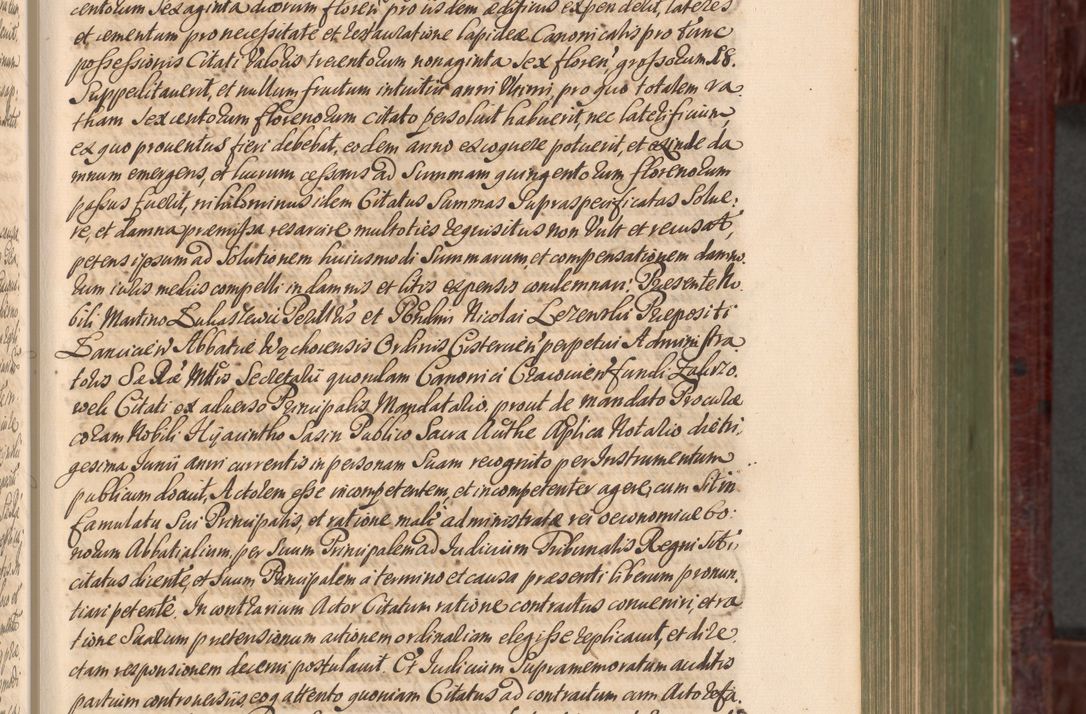 centorum sexaginta duorum floren: pro iisdem ædificiis expenderit, lateres
et cementum pro necessitate et restauratione lapideæ Canonicalis pro tunc
possessionis Citati valoris trecentorum nonaginta sex floren: grossorum 18.
suppeditaverit, et nullum fructum intuitu anni primi, pro quo totalem ra
tham sexcentorum florenorum citato persoluit habuerit, nec laterificium
ex quo proventus fieri debebat, eodem anno excoquere potuerit, et exinde da
mnum emergens, et lucrum cessans ad summam quingentorum florenorum
passus fuerit, nihilominus idem Citatus summas supraspecificatas solve:
re, et damna præmissa resarcire multoties requisitus non vult et recusat,
petens ipsum ad solutionem huiusmodi summarum, et compensationem damno
rum iuris mediis compelli in damnis et litis expensis condemnari: Præsente No
bili Martino Lukasiewicz Perillris et Rndmi Nicolai Lezenski Præpositi
Lanciciens Abbatiæ Wąchocensis Ordinis Cistercien perpetui Administra
toris Sæ Ræ Mttis Secretarii quondam Canonici Cracovien fundi Zakrzo
wek Citati ex adverso Principalis Mandatario, prout de mandato Procuræ
coram Nobili Hijacintho Sasin Publico Sacra Authe Aplica Notario die tri
gesima Junii anni currentis in personam suam recognito per Instrumentum
publicum docuit, Actorem esse incompetentem, et incompetenter agere, cum sit in
famulatu sui Principalis, et ratione male administratæ rei oeconomicæ bo:
norum Abbatialium, per suum Principalem ad Judicium Tribunalis Regni siti,
citatus dicente, et suum Principalem a termino et causa præsenti liberum pronun
tiari petente. In contrarium Actor Citatum ratione contractus conveniri, et ra
tione suarum prætensionum actionem ordinariam elegisse replicavit, et dire
ctam responsionem decerni postulavit. Et Judicium supramemoratum auditis
partium controversiis, eoq attento quoniam Citatus ad contractum cum Actore fa